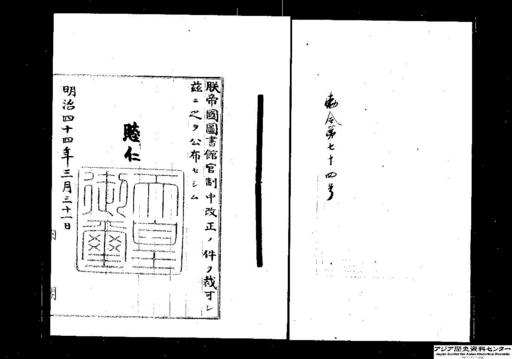 勅令第七十四号
朕帝國圖書館官制中改正ノ件ヲ裁可シ
茲ニ之ヲ公布セシム
睦仁
天皇御璽
明治四十四年三月三十一日
内閣
アジア歴史資料センター
Japan Center for Asian Historical Records